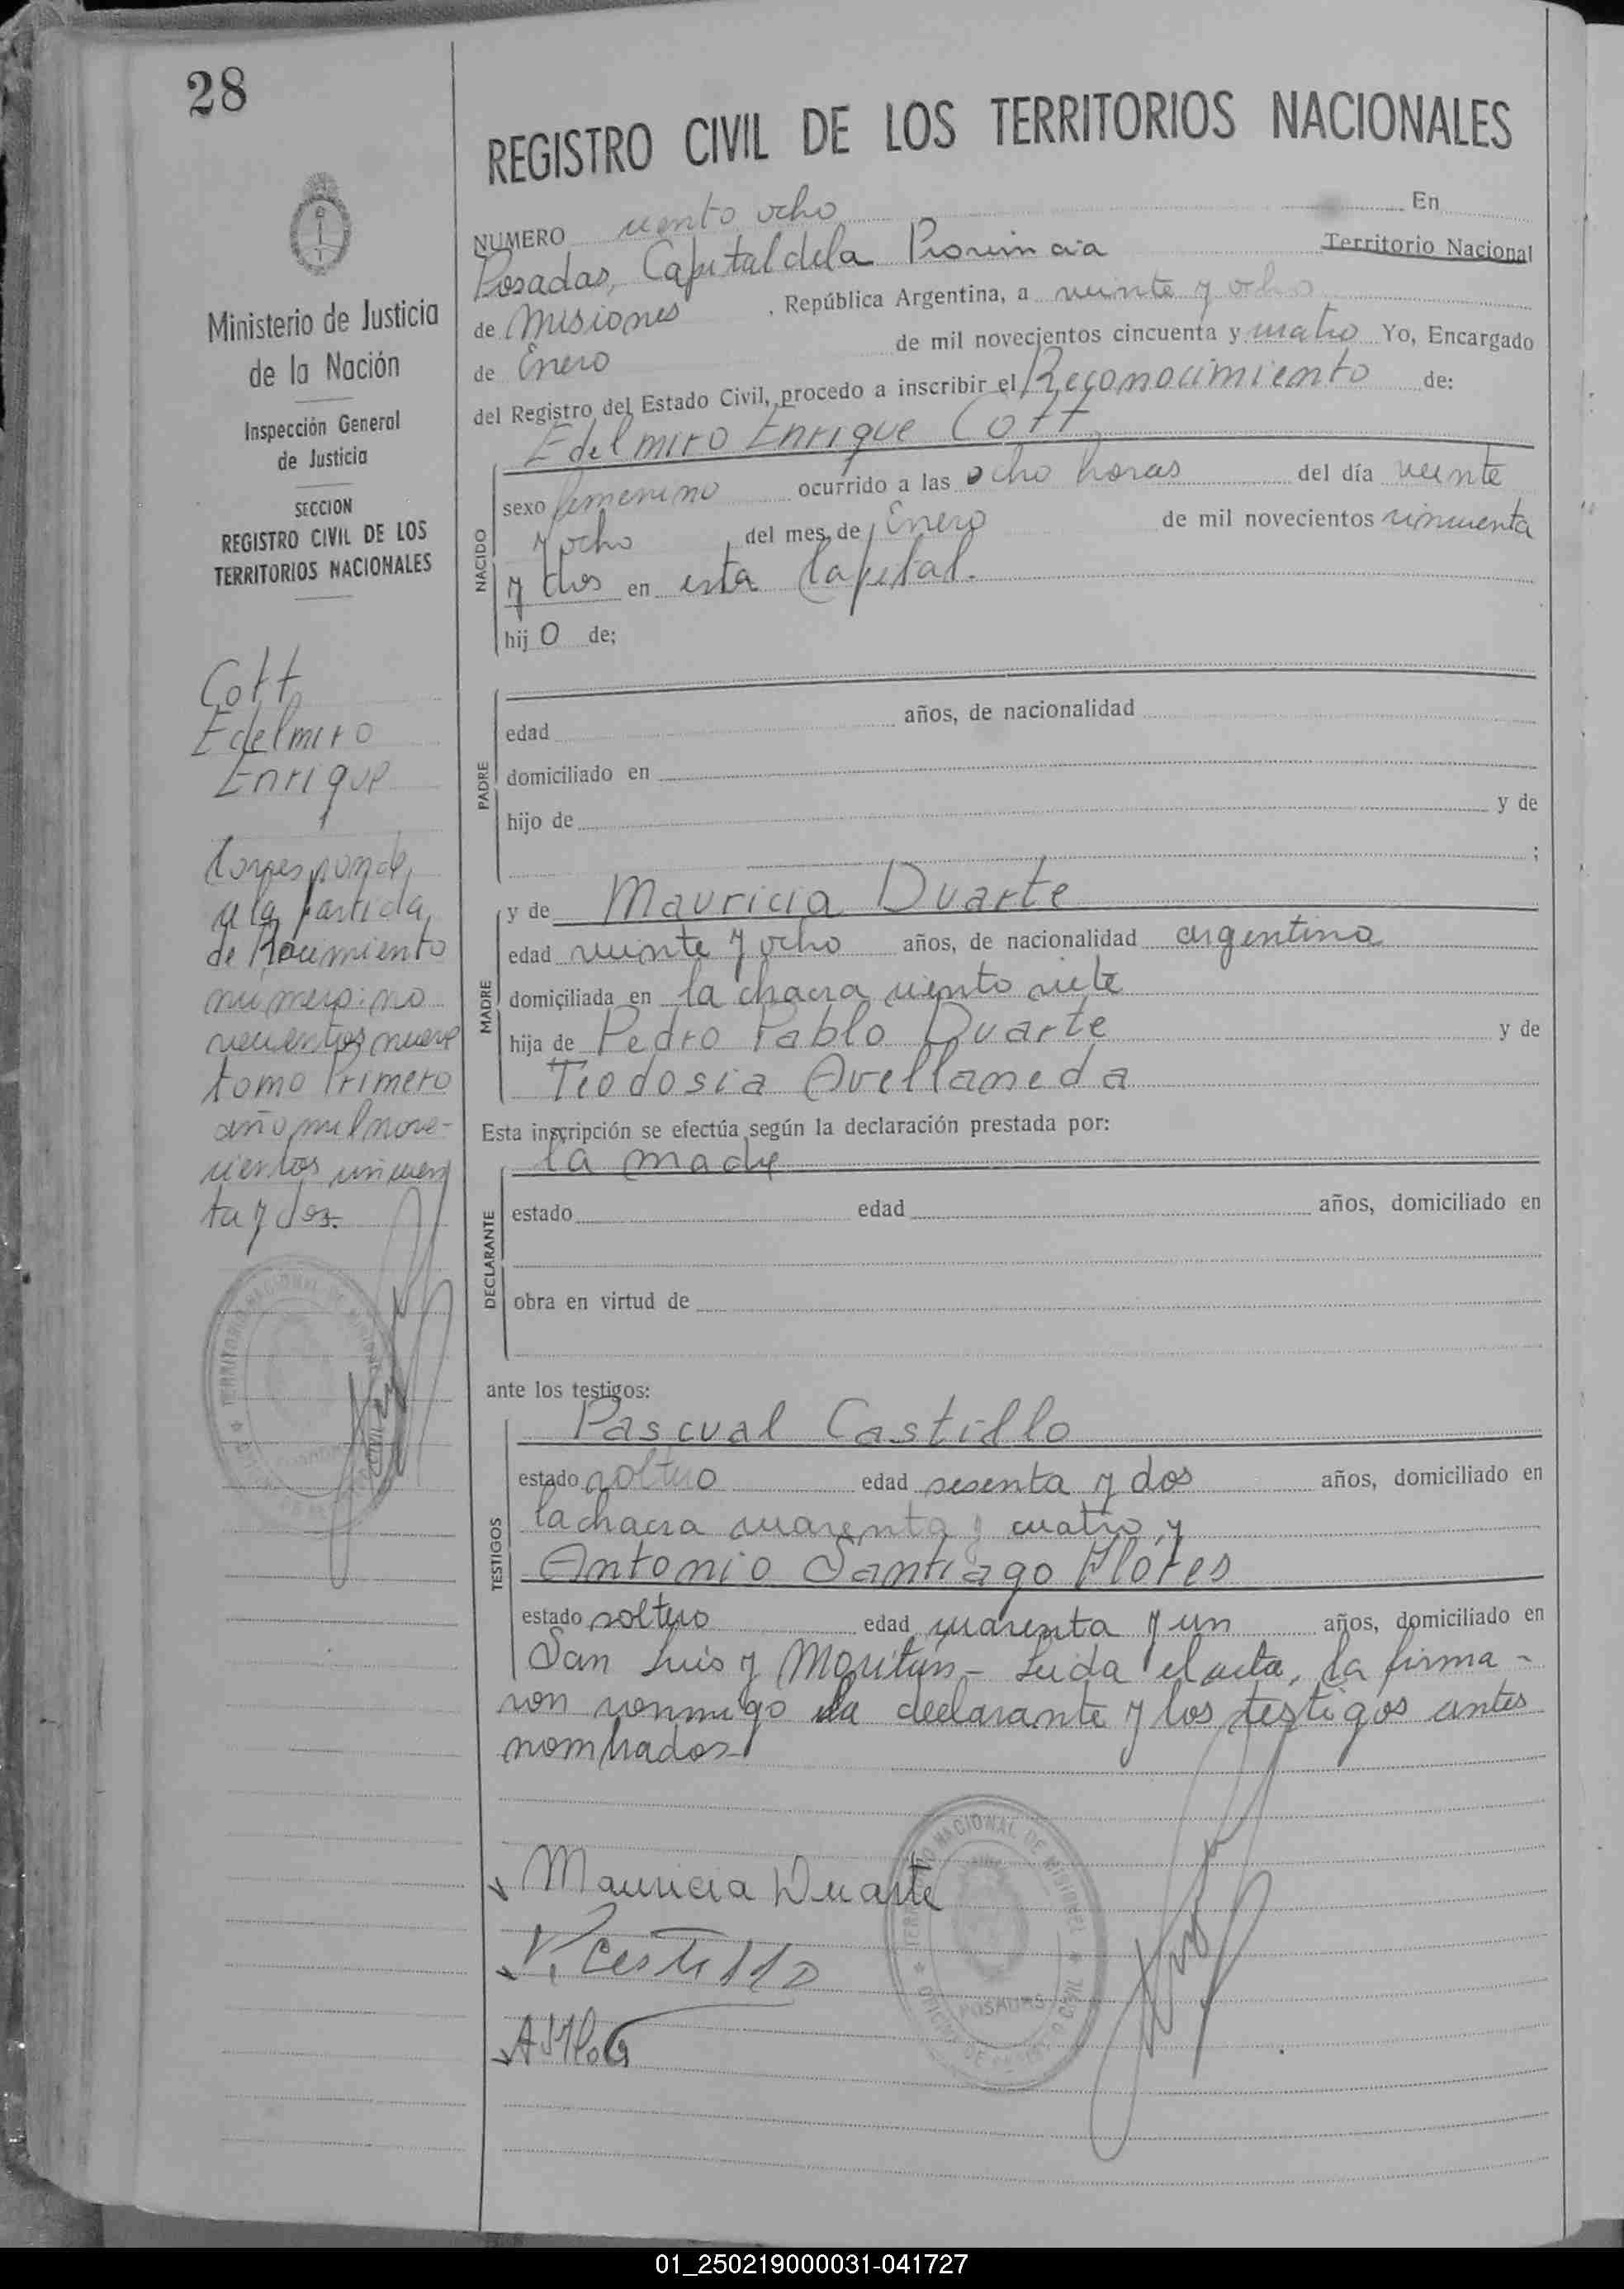 28
REGISTRO CIVIL DE LOS TERRITORIOS NACIONALES
NUMERO ciento ocho En
Posadas, Capital de la Provincia Territorio Nacional
de Misiones, República Argentina, a veinte y ocho
de Enero de mil novecientos cincuenta y cuatro Yo, Encargado
del Registro del Estado Civil, procedo a inscribir el Reconocimiento de:
Edelmiro Enrique Cott
NACIDO
sexo femenino ocurrido a las ocho horas del día veinte
y ocho del mes de Enero de mil novecientos cincuenta
y dos en esta Capital.
hijo de;
PADRE
edad años, de nacionalidad
domiciliado en
hijo de y de
;
MADRE
y de Mauricia Duarte
edad veinte y ocho años, de nacionalidad argentina
domiciliada en la chacra ciento siete
hija de Pedro Pablo Duarte y de
Teodosia Avellaneda
Esta inscripción se efectúa según la declaración prestada por:
la madre
DECLARANTE
estado edad años, domiciliado en
obra en virtud de
ante los testigos:
TESTIGOS
Pascual Castillo
estado soltero edad sesenta y dos años, domiciliado en
la chacra cuarenta y cuatro, y
Antonio Santiago Flores
estado soltero edad cuarenta y un años, domiciliado en
San Luis y Leida el acta, la firma-
ron conmigo la declarante y los testigos antes
nombrados
Mauricia Duarte
P. Castillo
TERRITORIO NACIONAL DE MISIONES
POSADAS
Ministerio de Justicia
de la Nación
Inspección General
de Justicia
SECCION
REGISTRO CIVIL DE LOS
TERRITORIOS NACIONALES
Cott
Edelmiro
Enrique
Corresponde
a la partida
de Nacimiento
número: no
vecientos nueve
tomo Primero
año mil nove-
cientos cincuen
ta y dos.
TERRITORIO NACIONAL DE
01_250219000031-041727